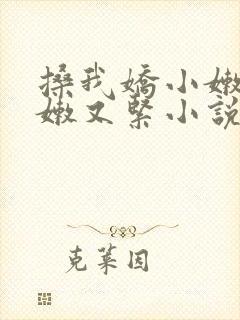 搡我嬌小嫩
嫩又緊小說
克萊因